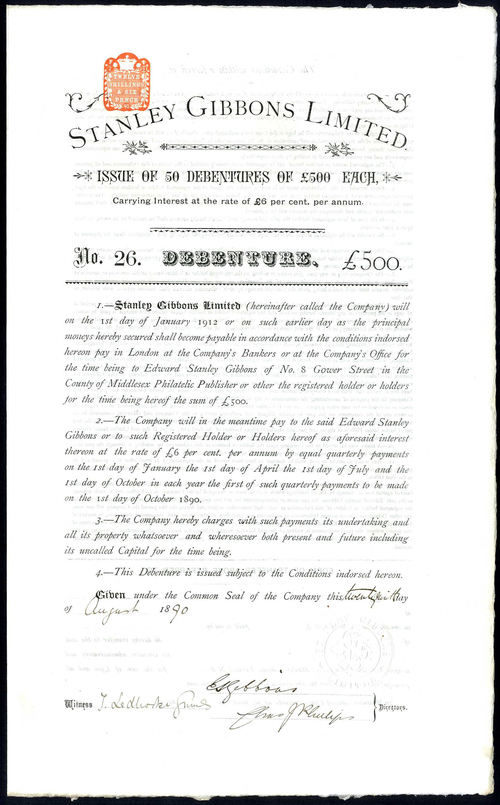 TWELVE
SHILLINGS
& SIX
PENCE
STANLEY GIBBONS LIMITED
ISSUE OF 50 DEBENTURES OF £500 EACH,
Carrying Interest at the rate of £6 per cent. per annum.
No. 26. DEBENTURE. £500.
1.—Stanley Gibbons Limited (hereinafter called the Company) will
on the 1st day of January 1912 or on such earlier day as the principal
moneys hereby secured shall become payable in accordance with the conditions indorsed
hereon pay in London at the Company's Bankers or at the Company's Office for
the time being to Edward Stanley Gibbons of No. 8 Gower Street in the
County of Middlesex Philatelic Publisher or other the registered holder or holders
for the time being hereof the sum of £500.
2.—The Company will in the meantime pay to the said Edward Stanley
Gibbons or to such Registered Holder or Holders hereof as aforesaid interest
thereon at the rate of £6 per cent. per annum by equal quarterly payments
on the 1st day of January the 1st day of April the 1st day of July and the
1st day of October in each year the first of such quarterly payments to be made
on the 1st day of October 1890.
3.—The Company hereby charges with such payments its undertaking and
all its property whatsoever and wheresoever both present and future including
its uncalled Capital for the time being.
4.—This Debenture is issued subject to the Conditions indorsed hereon.
Given under the Common Seal of the Company this day
of August 1890
E S Gibbons
Witness
Chas J Phillips
Directors.